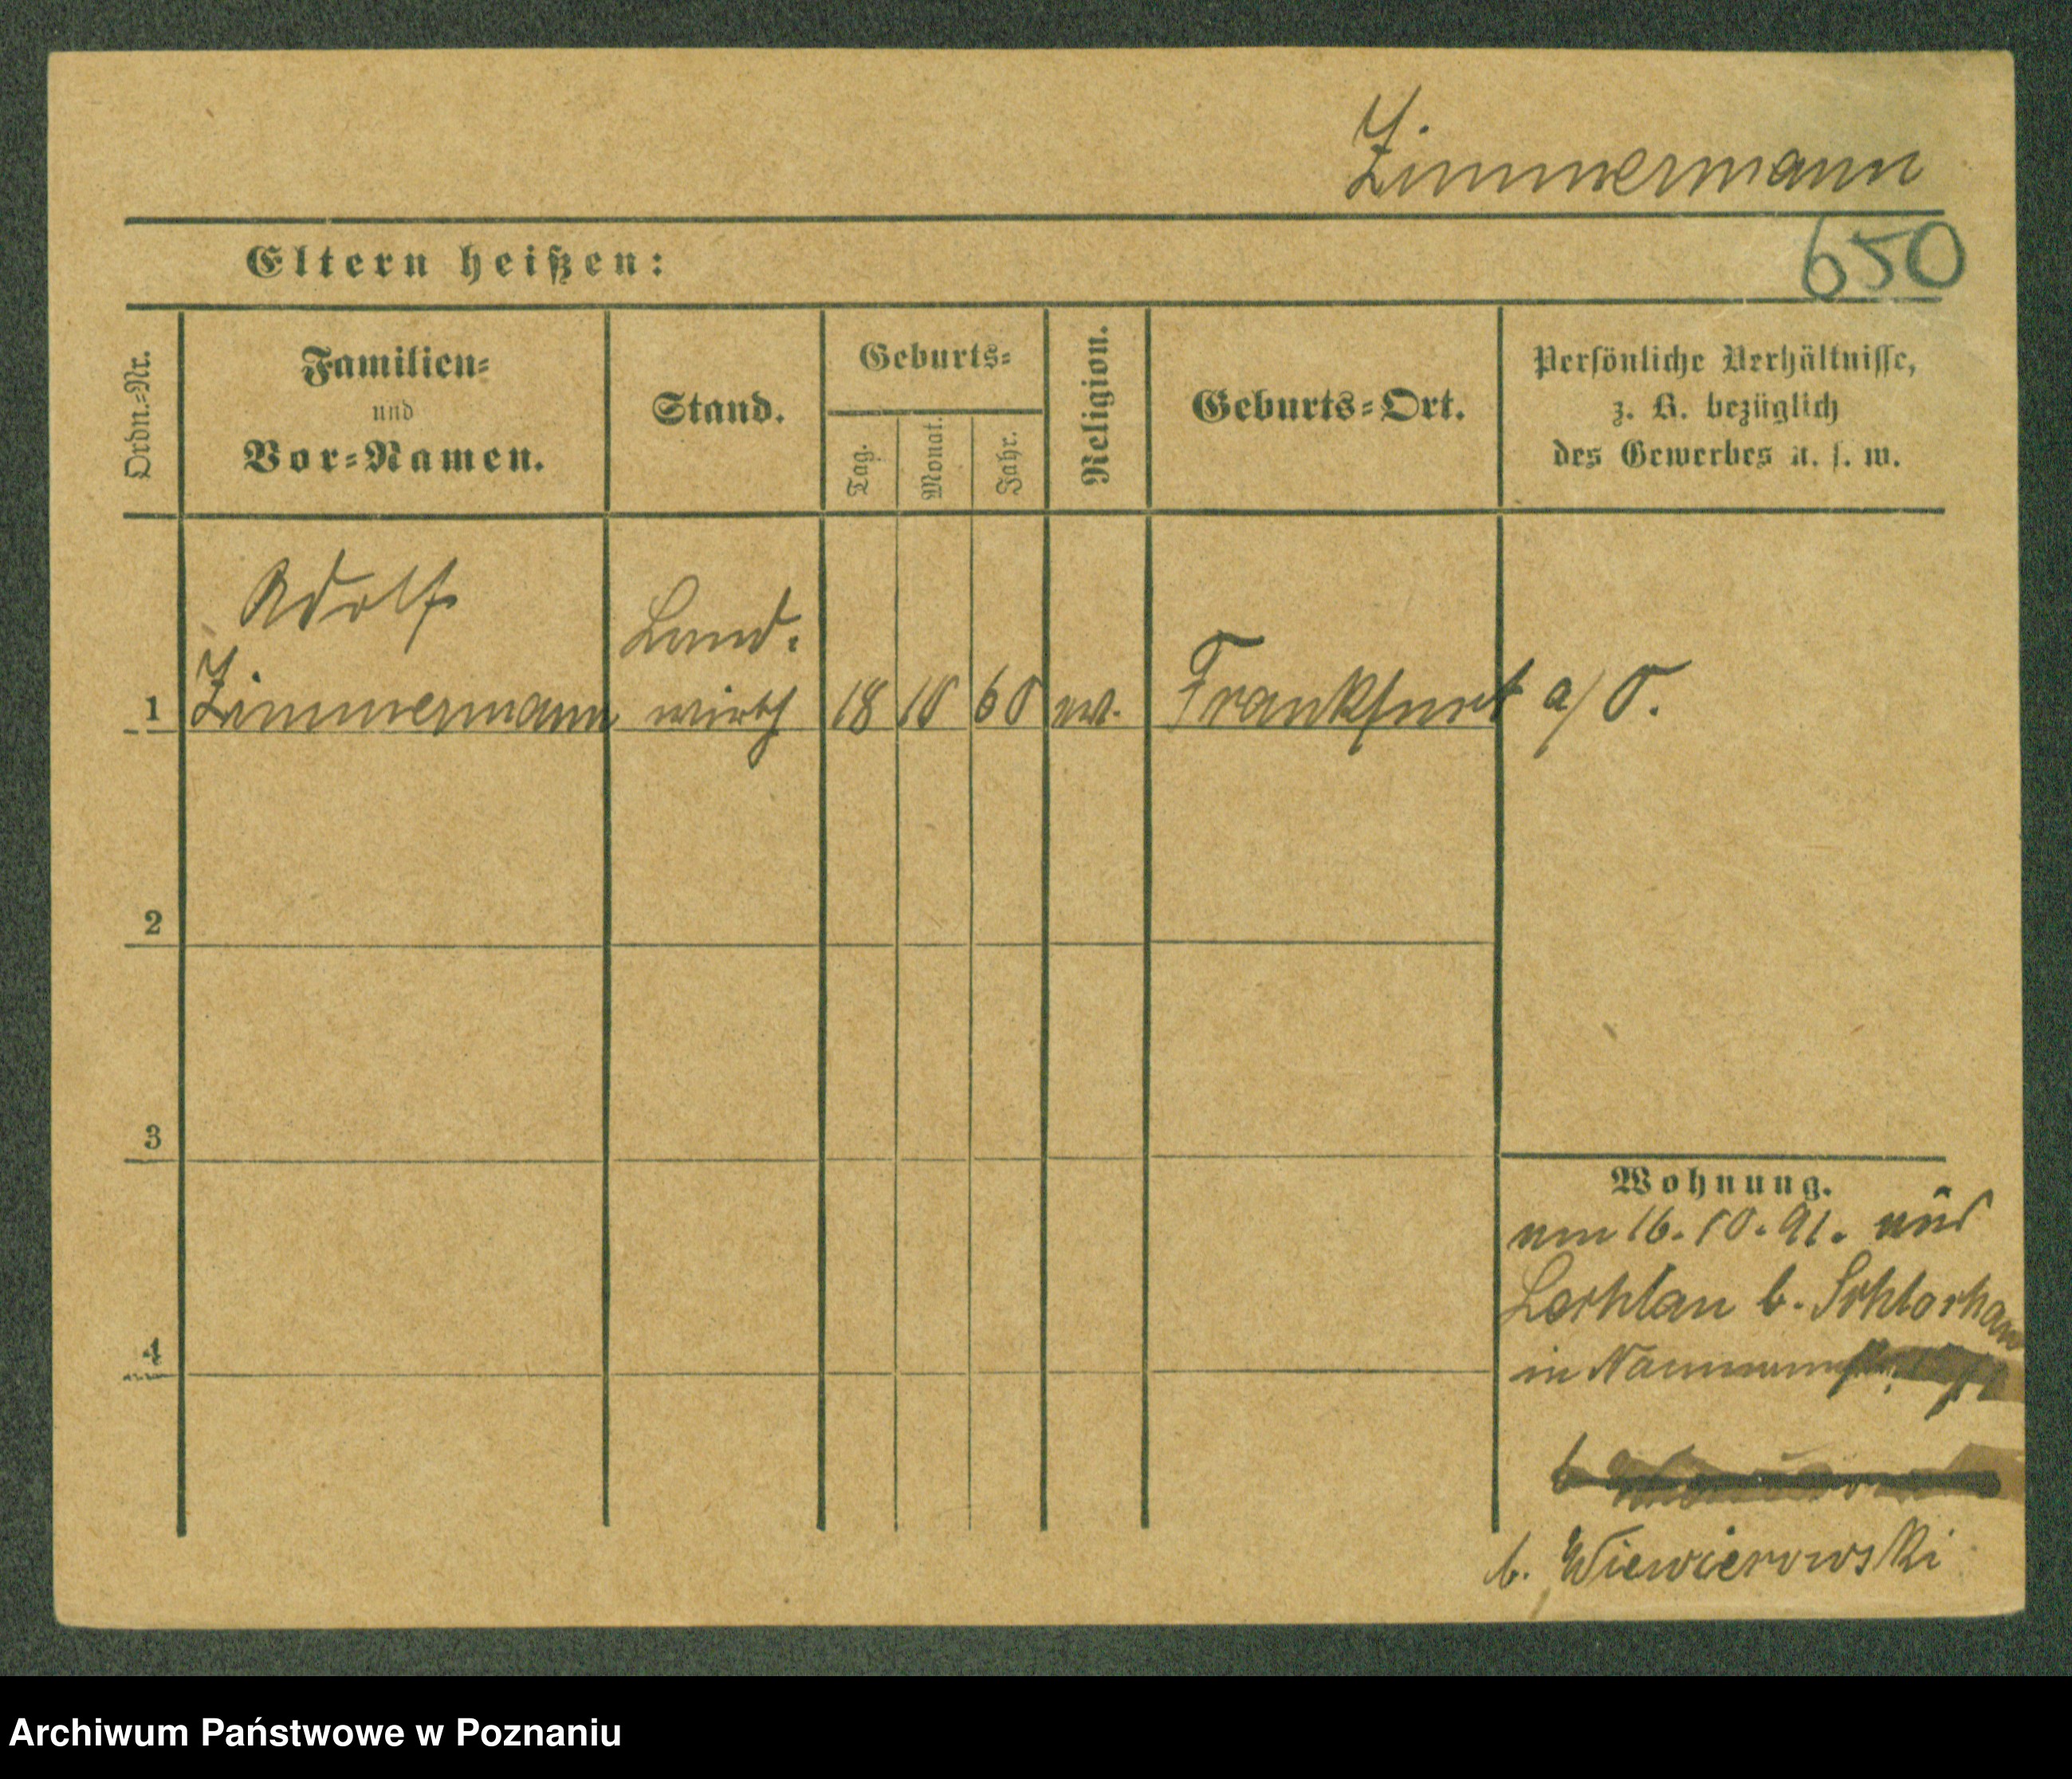 Zimmermann
650
Eltern heißen:
Ordn.-Nr.
Familien-
und
Vor-Namen.
Stand.
Geburts-
Tag.
Monat.
Jahr.
Religion.
Geburts-Ort.
Persönliche Verhältnisse,
z. B. bezüglich
des Gewerbes u. s. w.
Adolf
Zimmermann
Land-
wirth
1
18
10
60
ev.
Frankfurt a/O.
2
3
4
Wohnung.
am 16.10.91. aus
b.
in
b. Wiewierowski
Archiwum Państwowe w Poznaniu